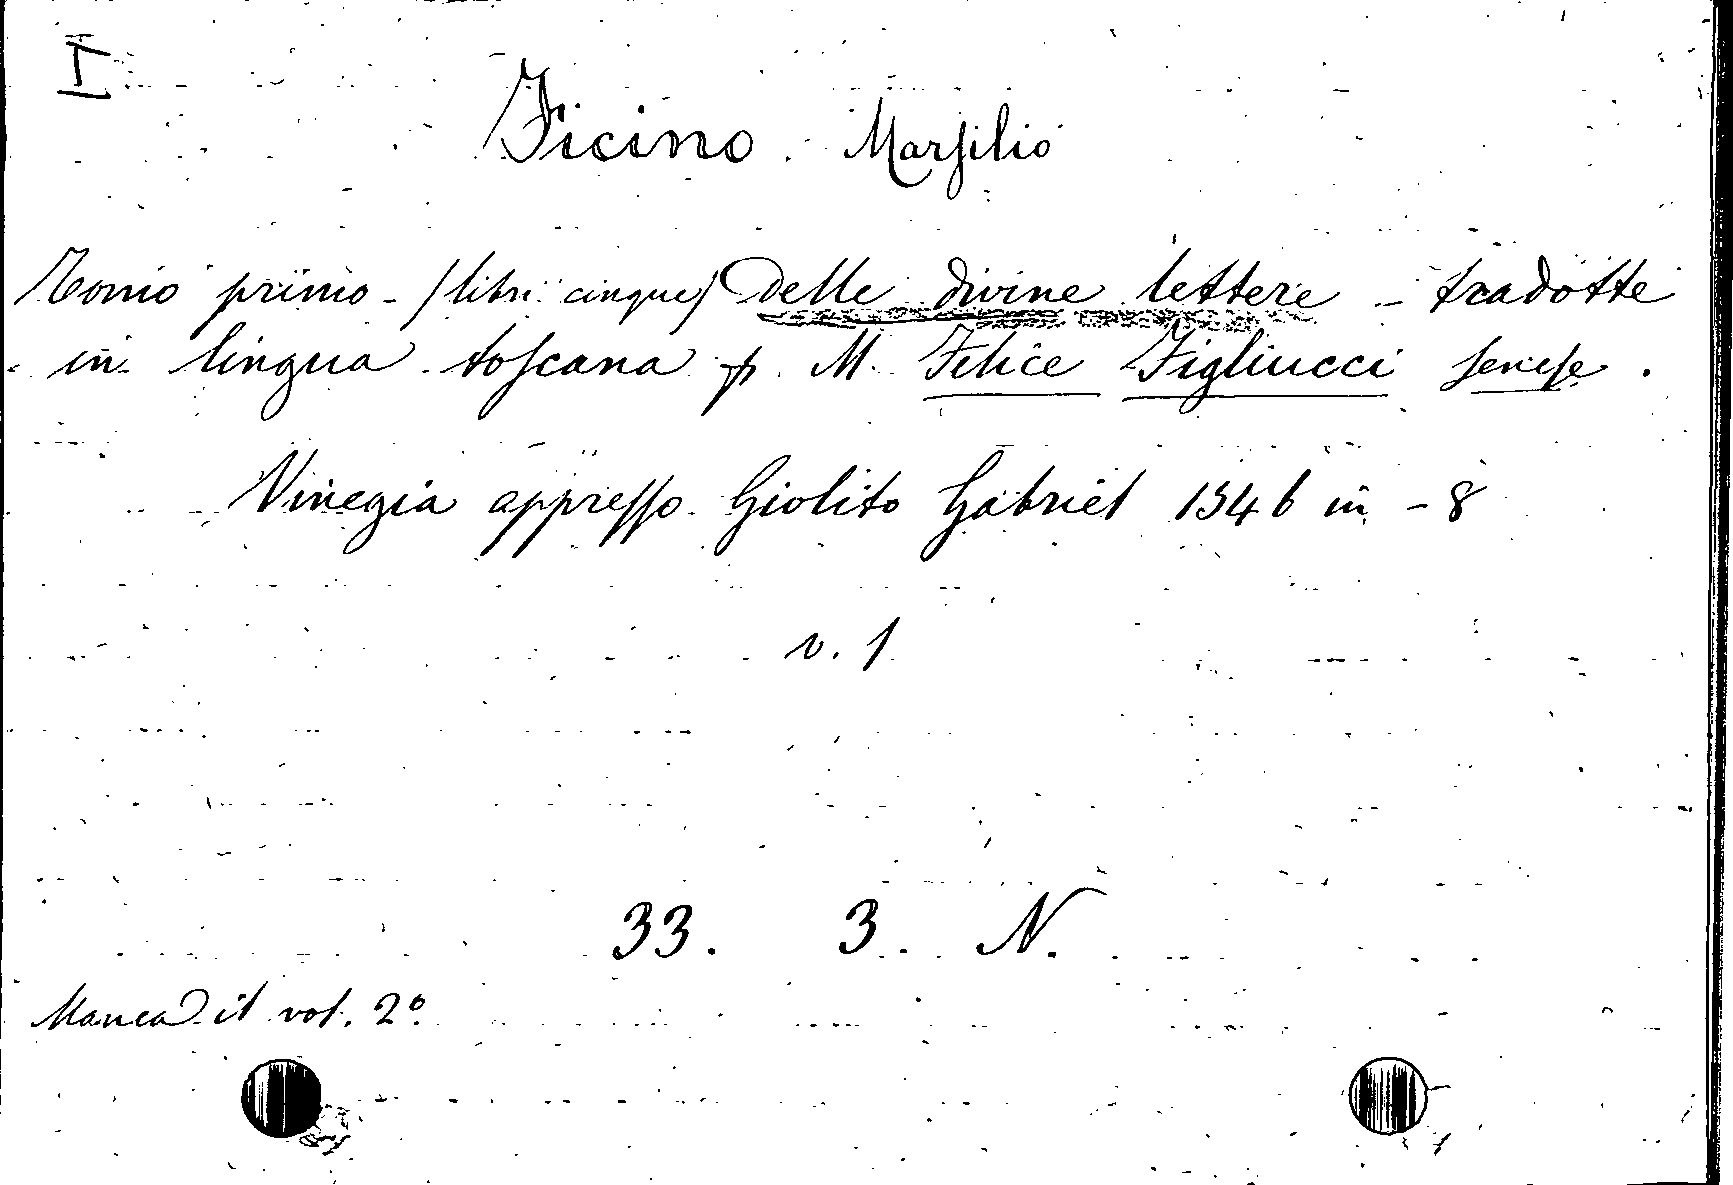 I
Ficino Marsilio
Tomo primo - (libri cinque) Delle divine lettere - tradotte
in lingua toscana p. M. Felice Figliucci senese.
Vinegia appresso Giolito Gabriel 1546 in - 8
v. 1
33. 3. N.
Manca il vol. 2º